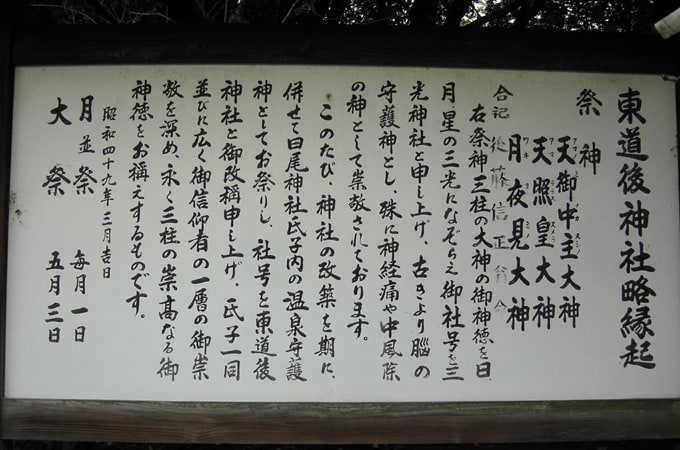 東道後神社略縁起
祭神
天御中主大神
天照皇大神
月夜見大神
合記 後藤信正翁命
右祭神三柱の大神の御神徳を日、
月、星の三光になぞらえ御社号を三
光神社と申し上げ、古きより脳の
守護神とし、殊に神経痛や中風除
の神として崇敬されております。
このたび、神社の改築を期に、
併せて日尾神社氏子内の温泉守護
神としてお祭りし、社号を東道後
神社と御改称申し上げ、氏子一同
並びに広く御信仰者の一層の御崇
敬を深め、永く三柱の崇高なる御
神徳をお稱えするものです。
昭和四十九年三月吉日
月並祭 毎月一日
大祭 五月三日